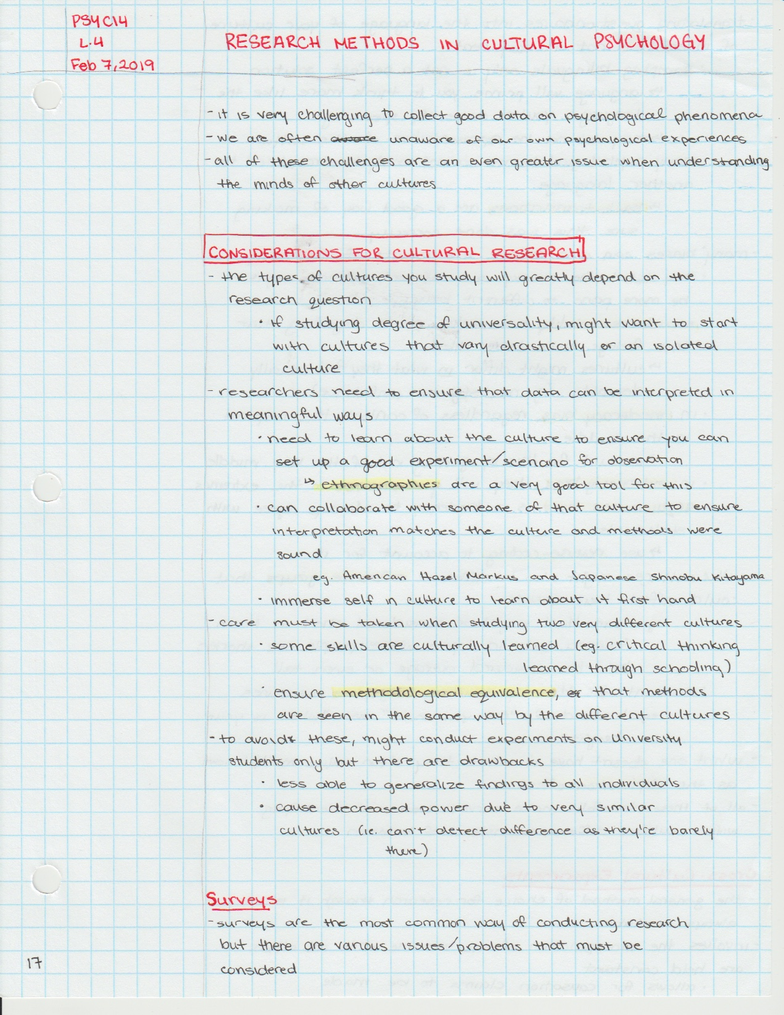 PSYC14
L.4
Feb 7, 2019
RESEARCH METHODS IN CULTURAL PSYCHOLOGY
- it is very challenging to collect good data on psychological phenomena
- we are often unaware of our own psychological experiences
- all of these challenges are an even greater issue when understanding
the minds of other cultures
CONSIDERATIONS FOR CULTURAL RESEARCH
- the types of cultures you study will greatly depend on the
research question
• if studying degree of universality, might want to start
with cultures that vary drastically or an isolated
culture
- researchers need to ensure that data can be interpreted in
meaningful ways
• need to learn about the culture to ensure you can
set up a good experiment/scenario for observation
↳ ethnographies are a very good tool for this
• can collaborate with someone of that culture to ensure
interpretation matches the culture and methods were
sound
eg. American Hazel Markus and Japanese Shinobu Kitayama
• immerse self in culture to learn about it first hand
- care must be taken when studying two very different cultures
• some skills are culturally learned (eg. critical thinking
learned through schooling)
• ensure methodological equivalence, or that methods
are seen in the same way by the different cultures
- to avoid these, might conduct experiments on University
students only but there are drawbacks
• less able to generalize findings to all individuals
• cause decreased power due to very similar
cultures (ie. can't detect difference as they're barely
there)
Surveys
- surveys are the most common way of conducting research
but there are various issues/problems that must be
considered
17